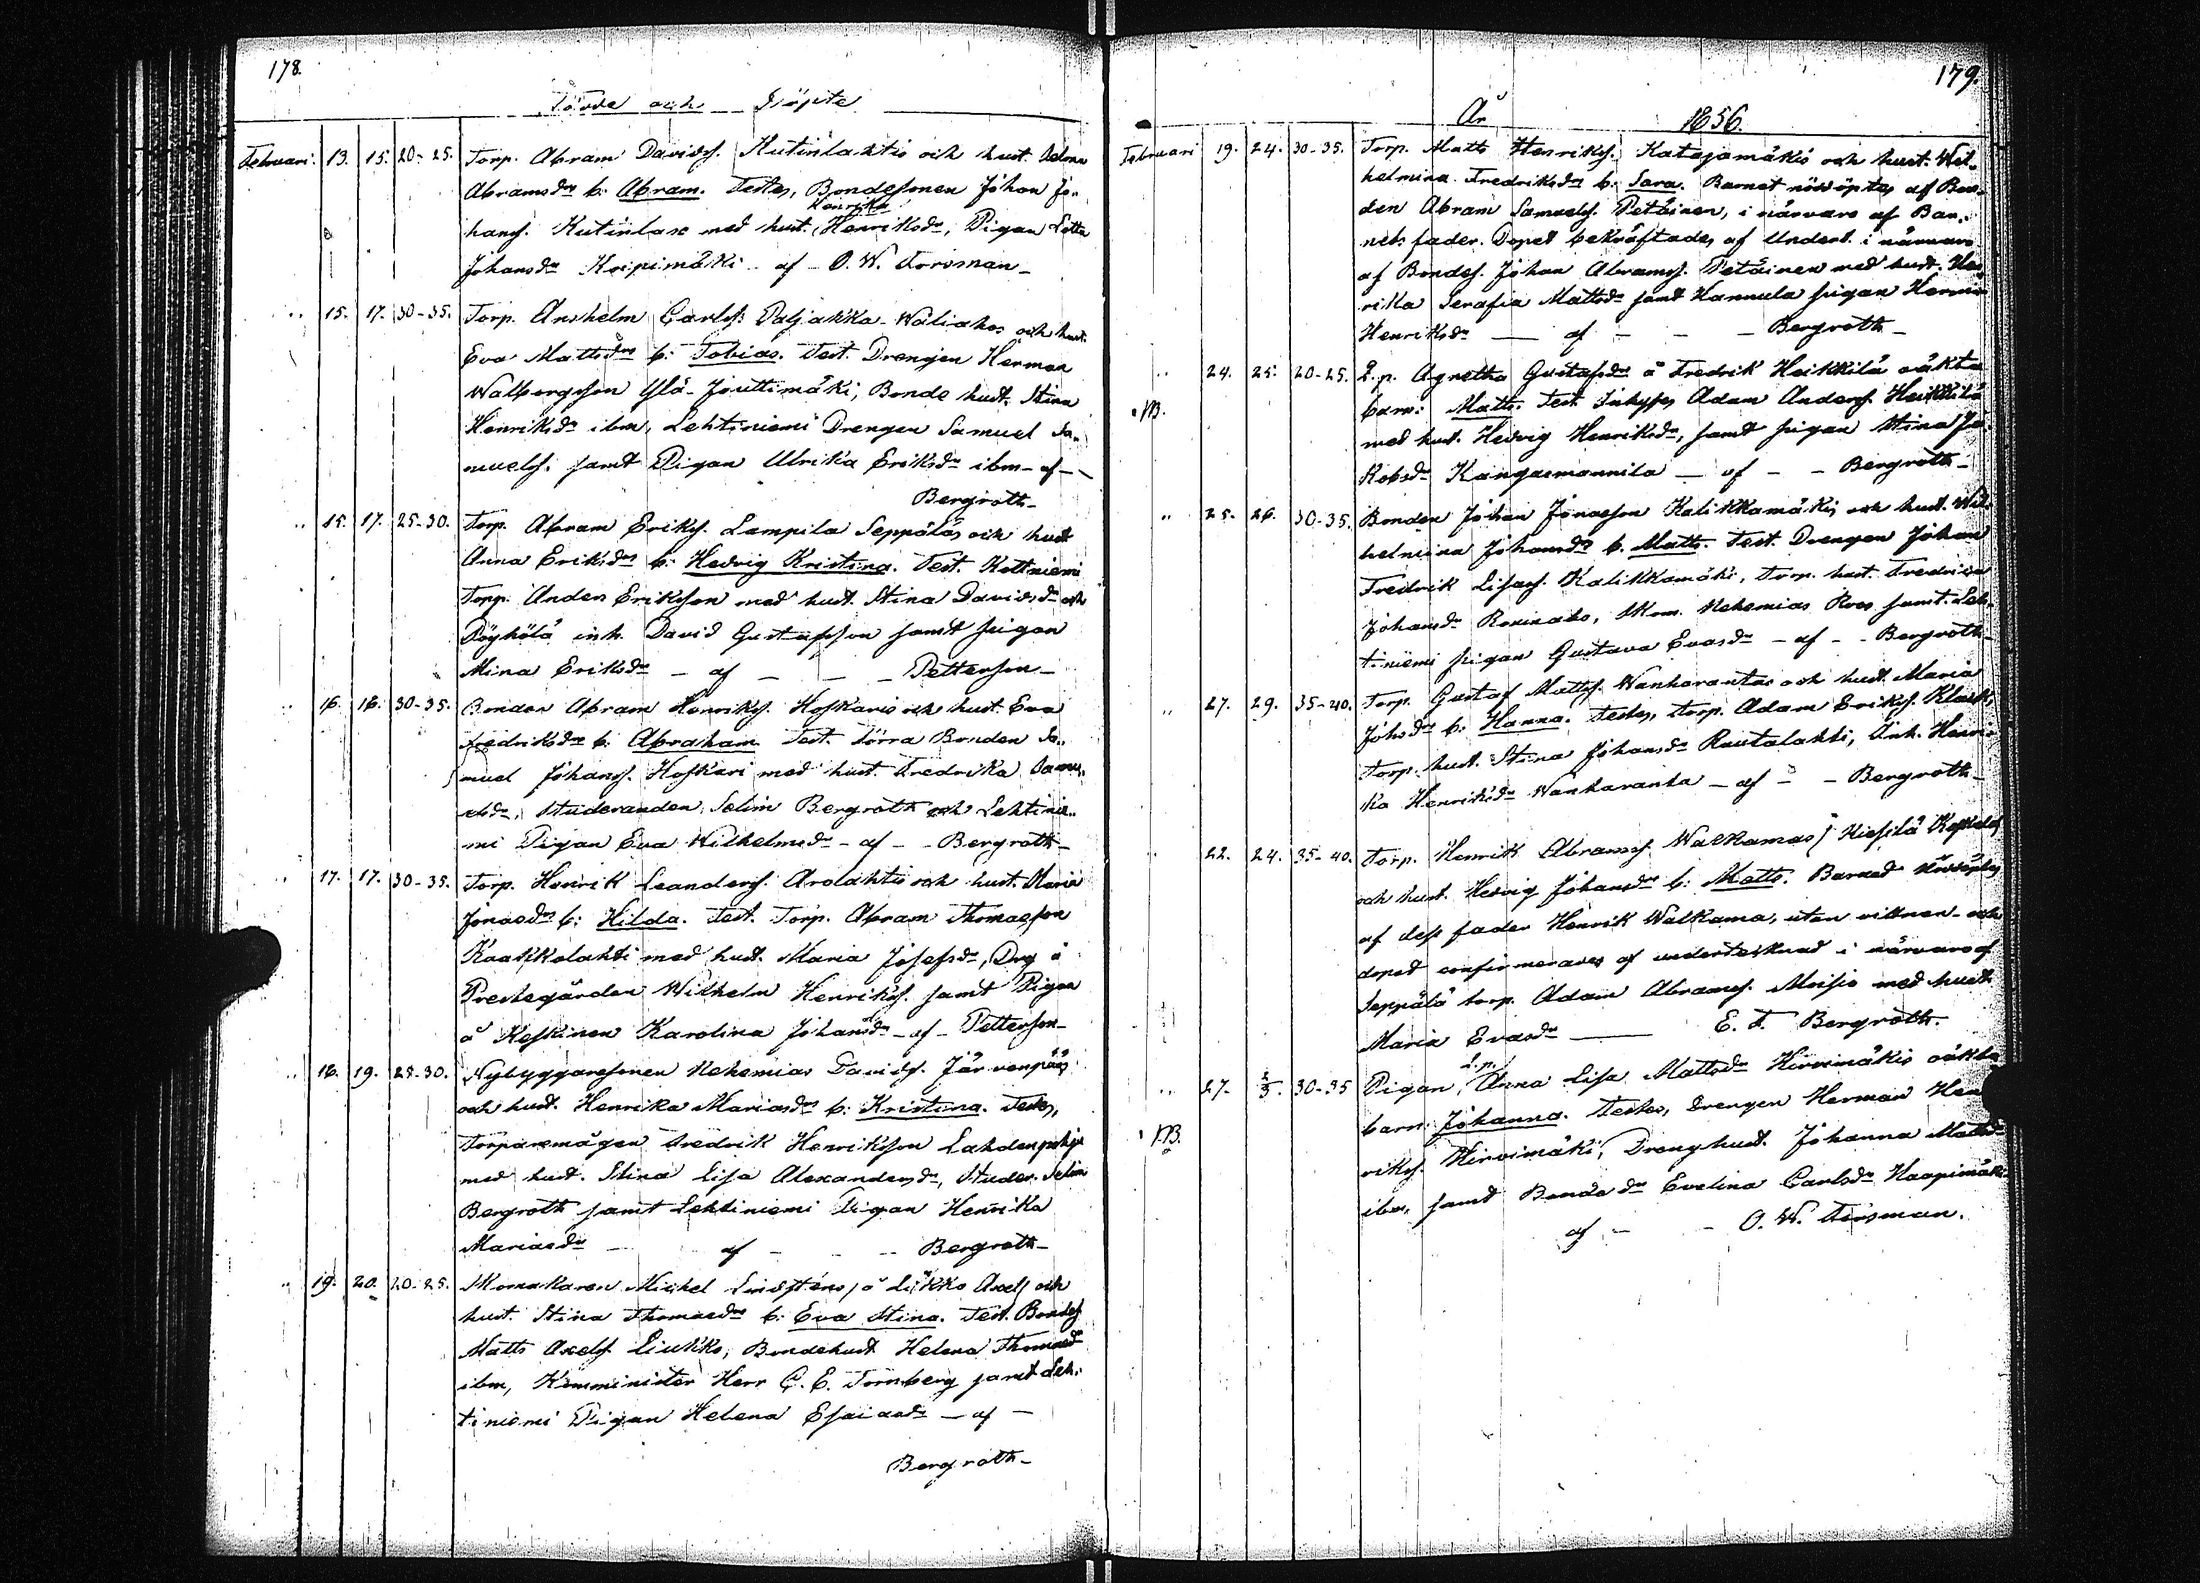 178.
Födde och Döpte
Februari. 13. 15. 20-25. Torp. Abram Davidss. Kutinlahtis och hust. Helena
Abramsdrs b: Abram. Testes, Bondesonen Johan Jo-
Henrika
hanss. Kutinlaks med hust. Henriksdr, Pigan Lotta
Johansdr Koipimäki - af - O. W. Forsman -
" 15. 17. 30-35. Torp. Anshelm Carlss. Paljakka-Waliahos och hust.
Eva Mattsdrs b: Tobias. Test. Drengen Herman
Walborgsson Ylä-Jouttimäki, Bonde hust. Stina
Henriksdr ibm, Lehtiniemi Drengen Samuel Sa-
muelss. samt Pigan Ulrika Eriksdr ibm - af -
Bergroth -
" 15. 17. 25-30. Torp. Abram Erikss. Lampila Seppäläs och hust
Anna Eriksdrs b: Hedvig Kristina. Test. Kottniemi
Torp. Anders Eriksson med hust. Stina Davidsdr och
Pöyhölä inh. David Gustafsson samt pigan
Mina Eriksdr - af - - - Petterson -
" 16. 16. 30-35. Bonden Abram Henrikss. Hofkaris och hust. Eva
Fredriksdrs b: Abraham. Test. Förra Bonden Sa-
muel Johanss. Hofkari med hust. Fredrika Samu-
elsdr, Studeranden Selim Bergroth och Lehtinie-
mi Pigan Eva Wilhelmsdr - af - - Bergroth -
" 17. 17. 30-35. Torp. Henrik Leanderss. Arolahtis och hust. Maria
Jonaedrs b: Hilda. Test. Torp. Abram Thomasson
Kaakkolahti med hust. Maria Josefsdr, Drg å
Prestegården Wilhelm Henrikss. samt Pigan
å Keskinen Karolina Johansdr - af - Petterson -
" 16. 19. 25-30. Nybyggaresonen Nehemias Davidss. Järvenpääs
och hust. Henrika Mariasdrs b: Kristina. Testes,
Torparemågen Fredrik Henriksson Lahdenpohja
med hust. Stina Lisa Alexandersdr, Studer. Selim
Bergroth samt Lehtiniemi Pigan Henrika
Mariasdr - af - - Bergroth -
" 19. 20. 20-25. Skomakaren Michel Lindsténs, å Liukko Axels och
hust. Stina Thomasdrs b: Eva Stina. Test. Bondes.
Matts Axelss. Liukko, Bondehust Helena Thomasdr
ibm, Komminister Herr C. E. Törnberg samt Leh-
tiniemi Pigan Helena Esaiasdr - af -
Bergroth -
179.
År 1856.
Februari 19. 24. 30-35. Torp. Matts Henrikss. Katajamäkis och hust. Wil-
helmina Fredriksdrs b: Sara. Barnet nöddöptes af Bon-
den Abram Samuelss. Petäinen, i närvaro af Bar-
nets fader. Dopet bekräftades af Undert. i närvaro
af Bondes. Johan Abramss. Petäinen med hust. Hen-
rika Serafia Mattsdr samt Hannula pigan Henrika
Henriksdr - af - - - Bergroth -
" 24. 25. 20-25. L.p. Agnetha Gustafsdrs å Fredrik Heikkilä oäkta
N.B.
barn: Matts. Test. Inhyses Adam Anderss. Heikkilä
med hust. Hedvig Henriksdr, samt pigan Stina Ja-
kobsdr Kangasmannila - af - - Bergroth -
" 25. 26. 30-35. Bonden Johan Jonasson Kalikkamäkis och hust. Wil-
helmina Johansdrs b: Matts. Test. Drengen Johan
Fredrik Lisass. Kalikkamäki, Torp. hust. Fredrika
Johansdr Rovinaho, Skom. Nehemias Roos samt Leh-
tiniemi pigan Gustava Evasdr - af - - Bergroth -
" 27. 29. 35-40. Torp. Gustaf Mattss. Wanharantas och hust. Maria
Johsdrs b: Hanna. Testes, Torp. Adam Erikss.
Torp. hust. Stina Johansdr Rautalahti, Inh. Henri-
ka Henriksdr Wanharanta - af - - Bergroth -
22. 24. 35-40. Torp. Henrik Abramss. Walkamas
och hust. Hedvig Johansdrs b: Matts. Barnet nöddöptes
af dess fader Henrik Walkama, utan vittnen - och
dopet confirmerades af undertecknad i närvaro af
Seppälä torp. Adam Abramss. Moisio med hust.
Maria Evasdr - E. F. Bergroth.
L.p.
" 27. 2/3. 30-35 Pigan, Anna Lisa Mattsdr Hirvimäkis oäkta
N.B.
barn: Johanna. Testes, Drengen Herman Hen-
rikss. Hirvimäki, Drenghust. Johanna Mattsdr
ibm, samt Bonde dr Evelina Carlsdr Haapimäki
af - - O. W. Forsman.